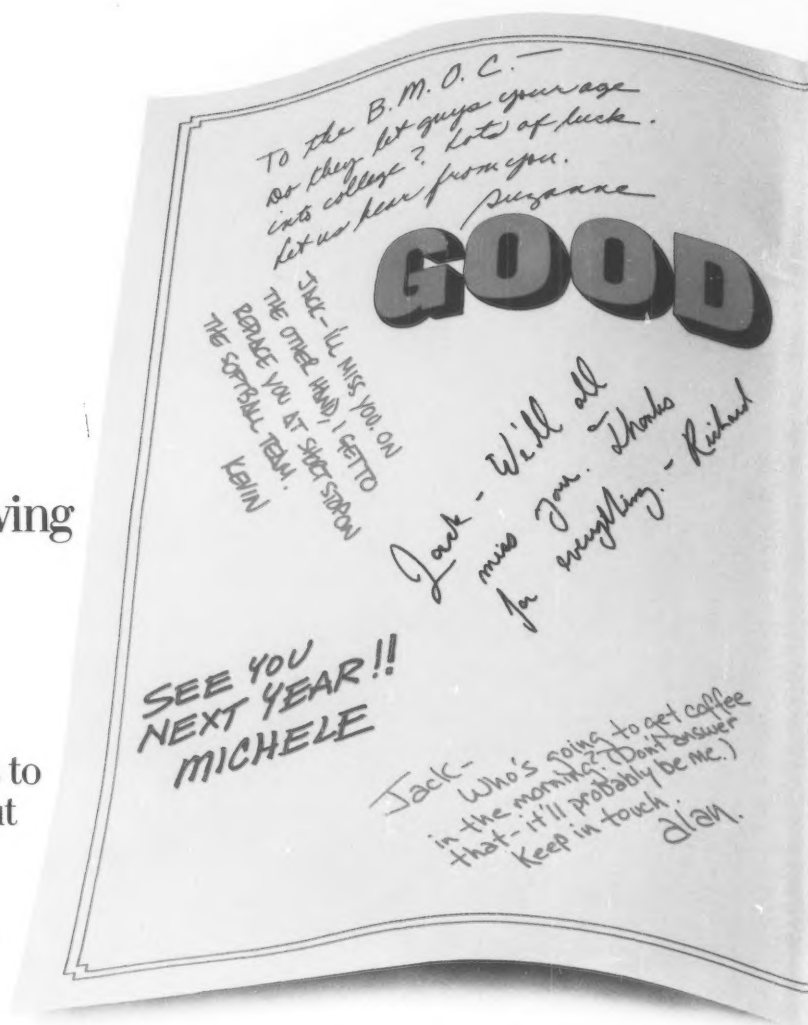 To the B.M.O.C. —
Do they let guys your age
into college? Lots of luck.
Let us hear from you.
Suzanne
GOOD
JACK - I'LL MISS YOU. ON
THE OTHER HAND, I GET TO
REPLACE YOU AT SHORT STOP ON
THE SOFTBALL TEAM.
KEVIN
Jack - We'll all
miss you. Thanks
for everything. - Richard
SEE YOU
NEXT YEAR!!
MICHELE
Jack-
Who's going to get coffee
in the morning? (Don't answer
that - it'll probably be me.)
Keep in touch.
alan.
to